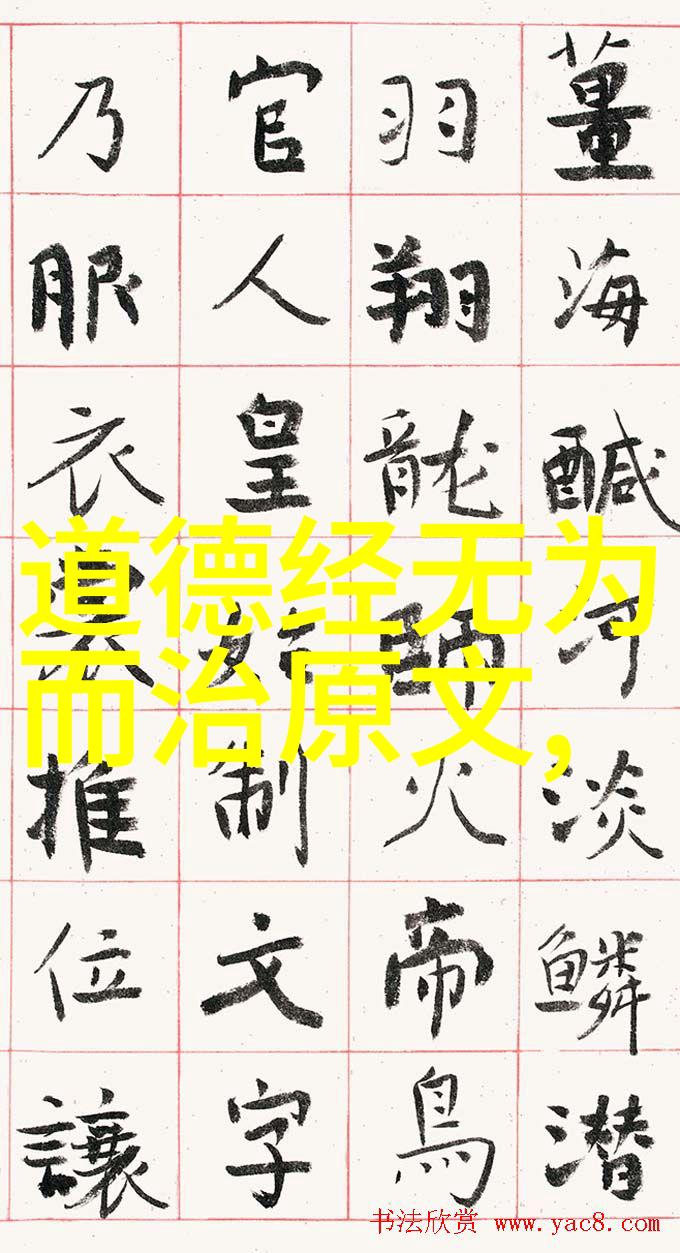 薑海醎河淡鱗潜
羽翔龍師火帝鳥
官人皇始制文字
乃服衣裳推位讓
道德经无为
而治原文,
书法欣赏 www.yac8.com